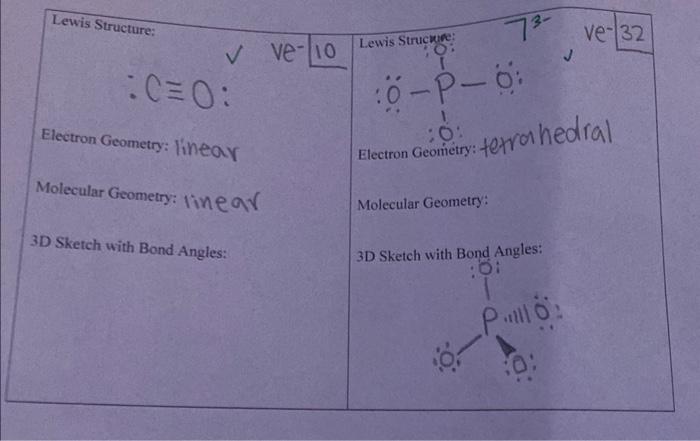 Lewis Structure:
✓ ve- 10
:C≡O:
Electron Geometry: linear
Molecular Geometry: linear
3D Sketch with Bond Angles:
Lewis Structure:
] 3-
ve- 32
✓
:Ö:
:Ö-P-Ö:
:O:
Electron Geometry: tetrahedral
Molecular Geometry:
3D Sketch with Bond Angles:
:O:
P Ö:
:O: :O: